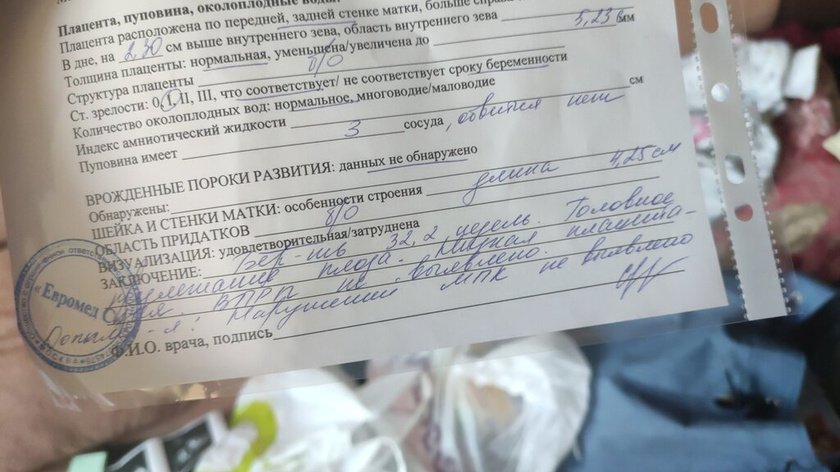 Плацента, пуповина, околоплодные воды:
Плацента расположена по передней, задней стенке матки, больше справа
В дне, на 2,30 см выше внутреннего зева, область внутреннего зева
Толщина плаценты: нормальная, уменьшена/увеличена до 5,23 мм
Структура плаценты б/о
Ст. зрелости: 0, I, II, III, что соответствует/ не соответствует сроку беременности
Количество околоплодных вод: нормальное, многоводие/маловодие
Индекс амниотической жидкости см
Пуповина имеет 3 сосуда, обвития нет
ВРОЖДЕННЫЕ ПОРОКИ РАЗВИТИЯ: данных не обнаружено
Обнаружены:
ШЕЙКА И СТЕНКИ МАТКИ: особенности строения длина 4,25 см
ОБЛАСТЬ ПРИДАТКОВ б/о
ВИЗУАЛИЗАЦИЯ: удовлетворительная/затруднена
ЗАКЛЮЧЕНИЕ: Бер-ть 32,2 недель. Головное
предлежание плода. Низкая плацента-
ция. ВПРП не выявлено.
Допплер-я: Нарушений МПК не выявлено
Ф.И.О. врача, подпись
«Евромед С